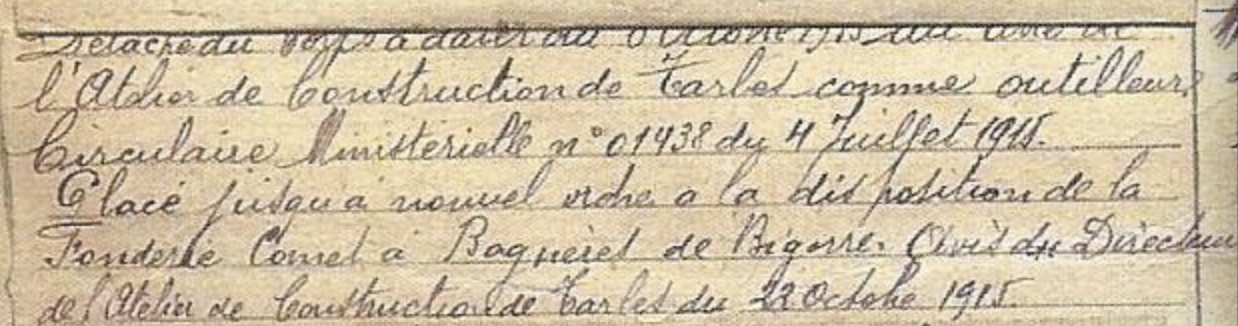 Détaché du corps à dater du octobre 1915 au
l'Atelier de Construction de Tarbes comme outilleur
Circulaire Ministérielle n° 01438 du 4 Juillet 1915.
Placé jusqu'à nouvel ordre à la disposition de la
Fonderie Comet à Bagnères de Bigorre. Avis du Directeur
de l'Atelier de Construction de Tarbes du 22 Octobre 1915.